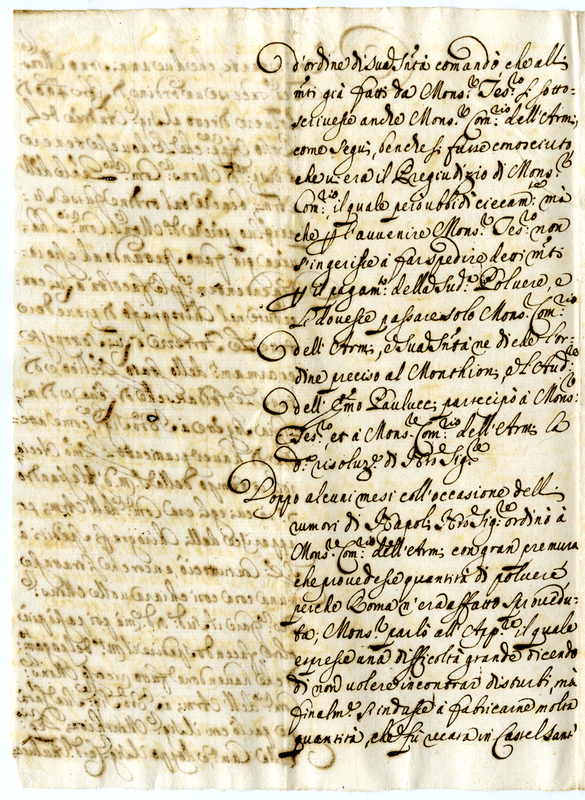 d'ordine di sua S.ntà comandò che all
m.ti già fatti da Mons.r Tes.ro si sotto=
scrivesse anche Mons.r Com.rio dell'Arm;
come seguì, benche si fusse conosciuto
che v'era il Pregiudizio di Mons.r
Com.rio il quale però ubbidì ciecam.te mà
che p l'avvenire Mons.r Tes.ro non
s'ingerisse à far spedire detti m.ti
p il pagam.to della sud.a Polvere, e
li dovesse passare solo Mons.r Com.rio
dell'Arm; e sua S.ntà ne diede l'or=
dine preciso al Monthioni, e l'Aud.re
dell'Em̃o Paulucci partecipò à Mons.r
Tes.ro et à Mons.r Com.rio dell'Arm la
d.a risoluz.e di N̄r̄o Sig.re
Doppo alcuni mesi coll'occasione dell
rumori di Napoli N̄r̄o Sig.re ordinò à
Mons.r Com.rio dell'Arm; con gran premura
che provedesse quantità di polvere
perche Roma n'era affatto sproveedu=
ta; Mons.r parlò all'App.re il quale
espresse una difficoltà grande dicendo
di non volere incontrar disturbi, ma
finalm.te s'indusse à fabricarne molta
quantità, che fù recata in Castel Sant'